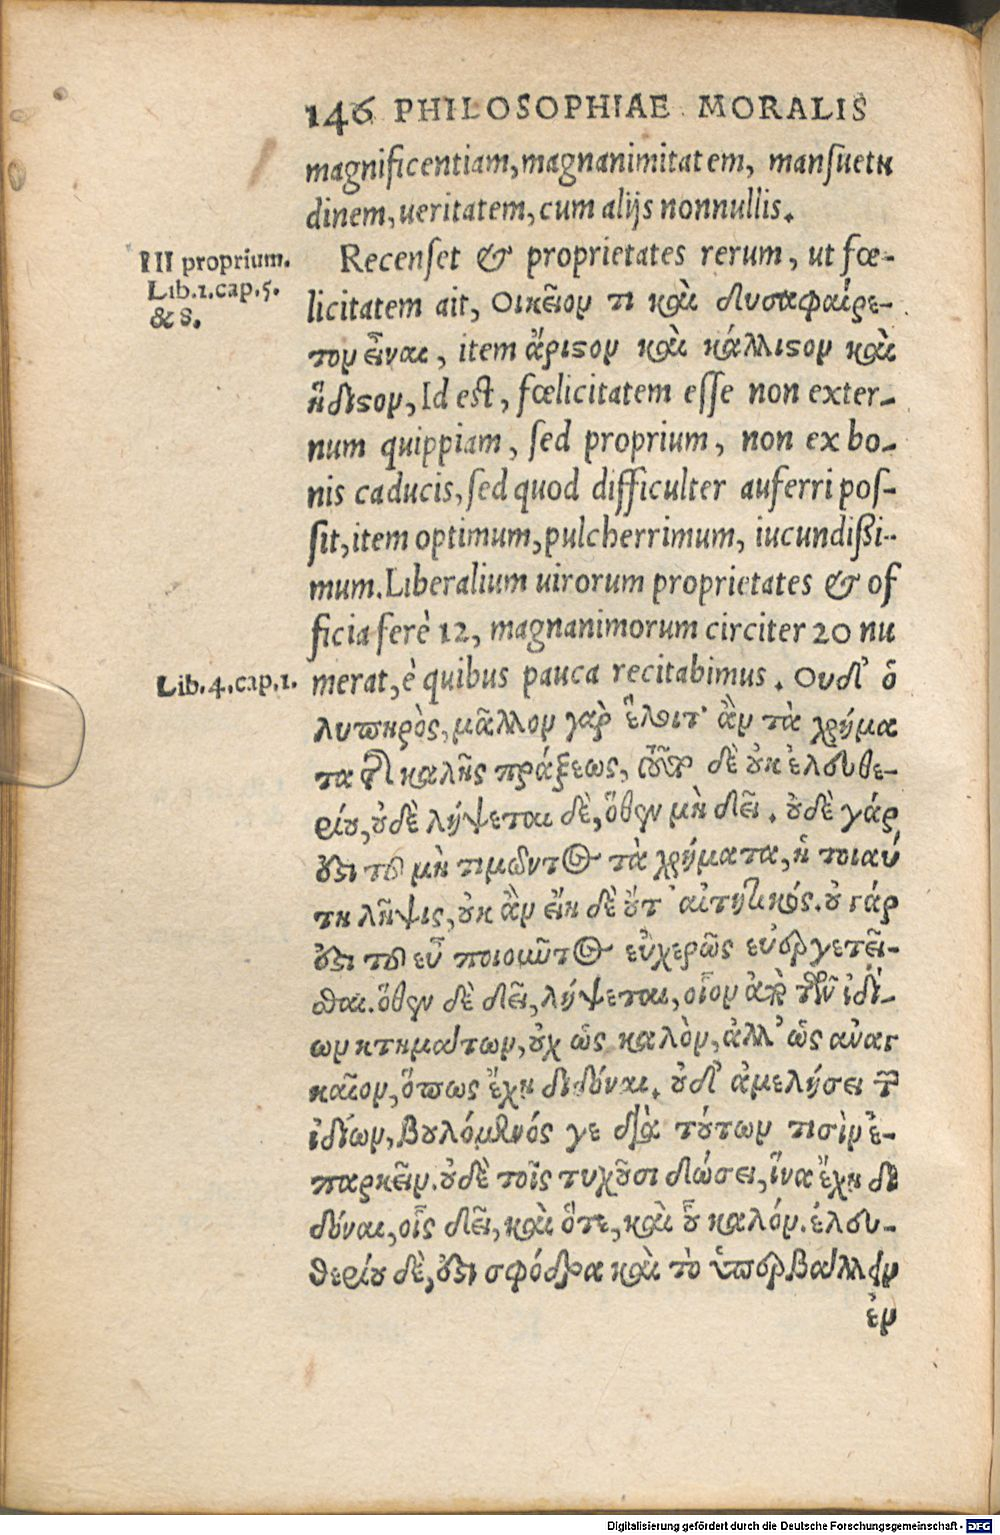 146 PHILOSOPHIAE MORALIS
magnificentiam, magnanimitatem, mansuetu
dinem, ueritatem, cum alijs nonnullis.
III proprium.
Lib.1.cap.5.
& 8.
Recenset & proprietates rerum, ut fœ-
licitatem ait, Οικεῖον τι καὶ δυσαφαίρε-
τον εἶναι, item ἄριστον καὶ κάλλιστον καὶ
ἥδιστον, Id est, fœlicitatem esse non exter-
num quippiam, sed proprium, non ex bo-
nis caducis, sed quod difficulter auferri pos-
sit, item optimum, pulcherrimum, iucundißi-
mum. Liberalium uirorum proprietates & of
ficia ferè 12, magnanimorum circiter 20 nu
Lib.4.cap.1.
merat, è quibus pauca recitabimus. Ουδ' ὁ
λυπηρὸς, μᾶλλον γὰρ ἕλοιτ' ἂν τὰ χρήμα
τα τῆς καλῆς πράξεως, τοῦτο δὲ οὐκ ἐλευθε-
ρίου, οὐδὲ λήψεται δὲ, ὅθεν μὴ δεῖ. οὐδὲ γάρ
ὅστι τοῦ μὴ τιμῶντος τὰ χρήματα, ἡ τοιαύ
τη λῆψις, οὐκ ἂν εἴη δὲ οὔτ' αἰτητικός. οὐ γάρ
ὅστι τοῦ εὖ ποιοῦντος εὐχερῶς εὐεργετεῖ-
σθαι. ὅθεν δὲ δεῖ, λήψεται, οἷον ἀπὸ τῶν ἰδί-
ων κτημάτων, οὐχ ὡς καλὸν, ἀλλ' ὡς ἀναγ
καῖον, ὅπως ἔχῃ διδόναι. οὐδ' ἀμελήσει τῶν
ἰδίων, βουλόμενός γε διὰ τούτων τισὶν ἐ-
παρκεῖν. οὐδὲ τοῖς τυχοῦσι δώσει, ἵνα ἔχῃ δι
δόναι, οἷς δεῖ, καὶ ὅτε, καὶ οὗ καλόν. ἐλευ-
θερίου δὲ, ὅστι σφόδρα καὶ τὸ ὑπερβάλλειν
ἐν
Digitalisierung gefördert durch die Deutsche Forschungsgemeinschaft - DFG